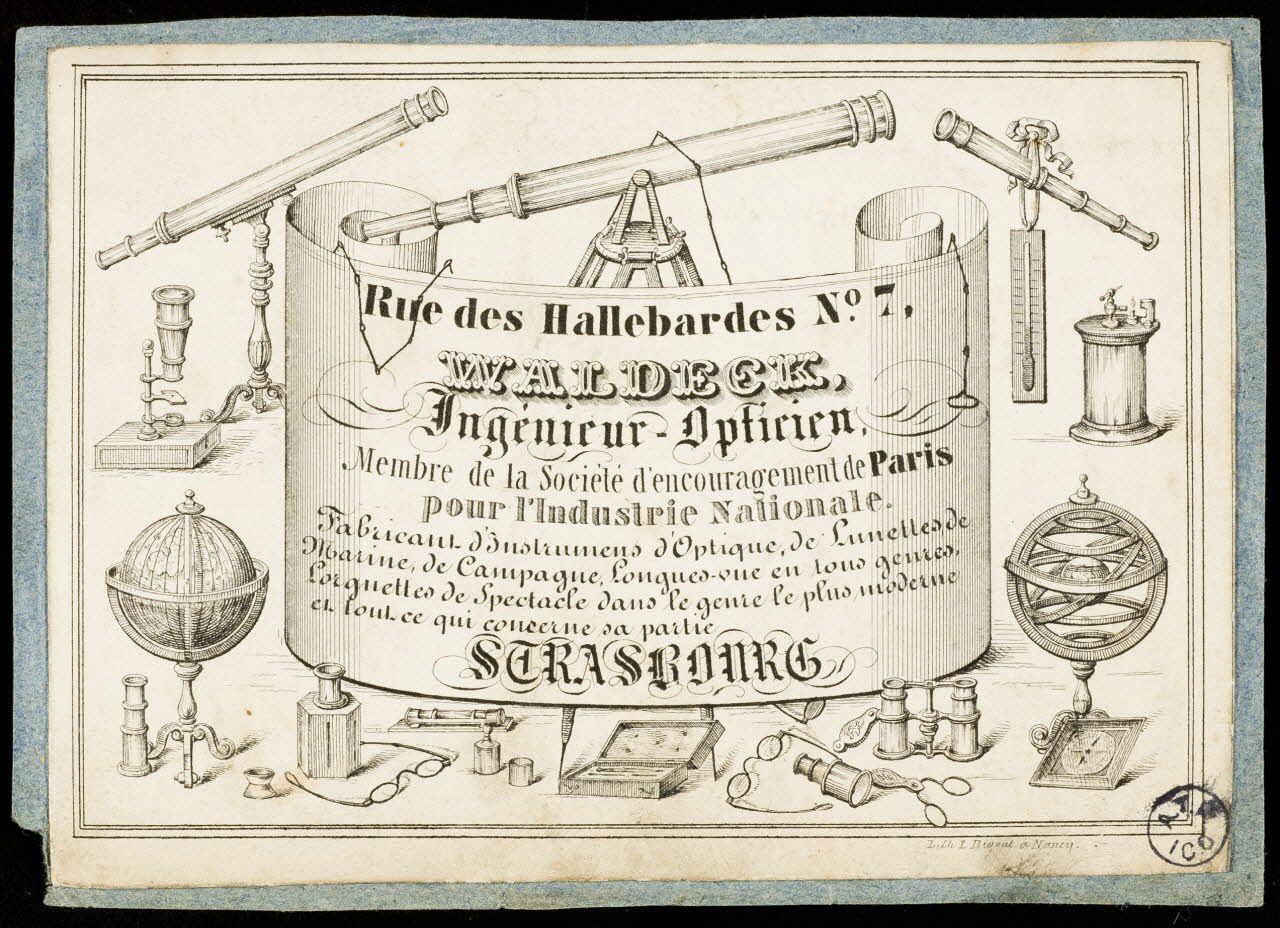 Rue des Hallebardes Nº 7,
WALDECK,
Ingénieur-Opticien,
Membre de la Société d'encouragement de Paris
pour l'Industrie Nationale.
Fabricant d'Instrumens d'Optique, de Lunettes de
Marine, de Campagne, Longues-vue en tous genres,
Lorgnettes de Spectacle dans le genre le plus moderne
et tout ce qui concerne sa partie
STRASBOURG
Lith. L. à Nancy.
ICO